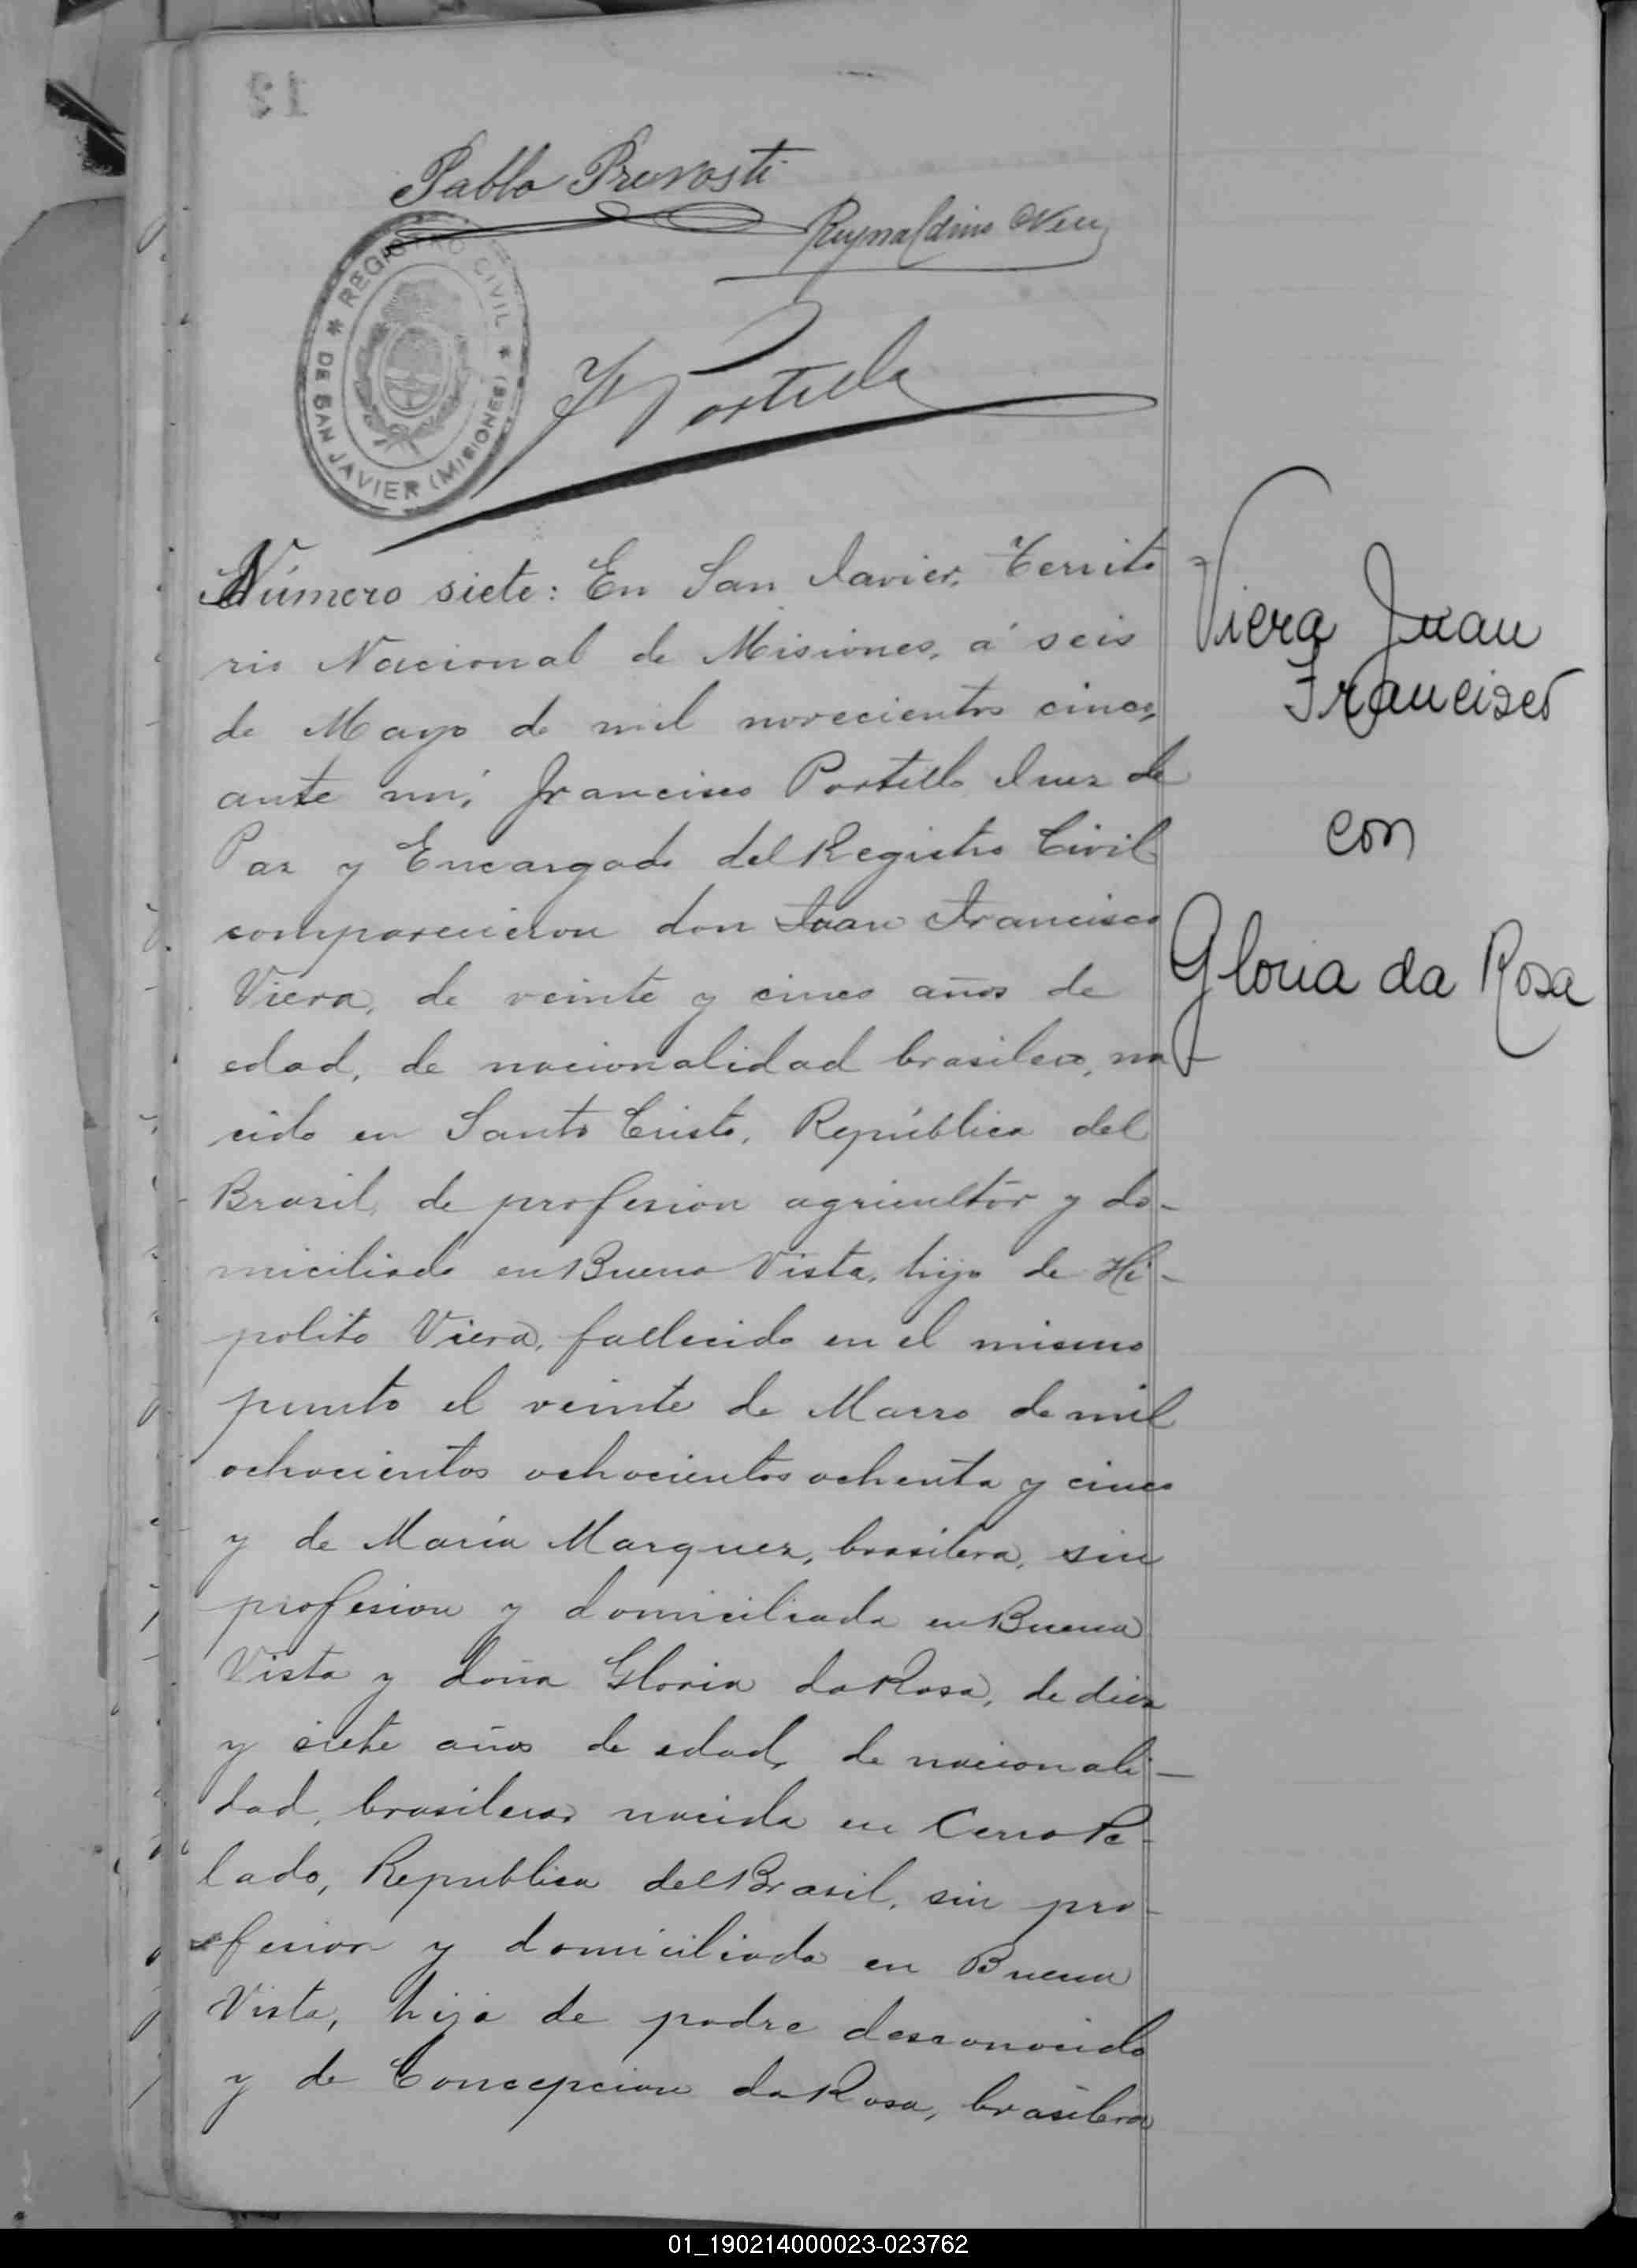 12
Pablo Prevosti
Reynaldino
REGISTRO CIVIL
DE SAN JAVIER (MISIONES)
F Portillo
Número siete: En San Javier, Territo
rio Nacional de Misiones, á seis
de Mayo de mil novecientos cinco,
ante mi, Francisco Portillo Juez de
Paz y Encargado del Registro Civil
comparecieron don Juan Francisco
Viera, de veinte y cinco años de
edad, de nacionalidad brasilero, na
cido en Santo Cristo, República del
Brasil, de profesion agricultor y do-
miciliado en Buena Vista, hijo de Hi-
polito Viera, fallecido en el mismo
punto el veinte de Marzo de mil
ochocientos ochocientos ochenta y cinco
y de María Marquez, brasilera, sin
profesion y domiciliada en Buena
Vista y doña Gloria da Rosa, de diez
y siete años de edad, de nacionali-
dad, brasilera nacida en Cerro Pe-
lado, Republica del Brasil, sin pro-
fesion y domiciliada en Buena
Vista, hija de padre desconocido
y de Concepcion da Rosa, brasilera
Viera Juan
Francisco
con
Gloria da Rosa
01_190214000023-023762